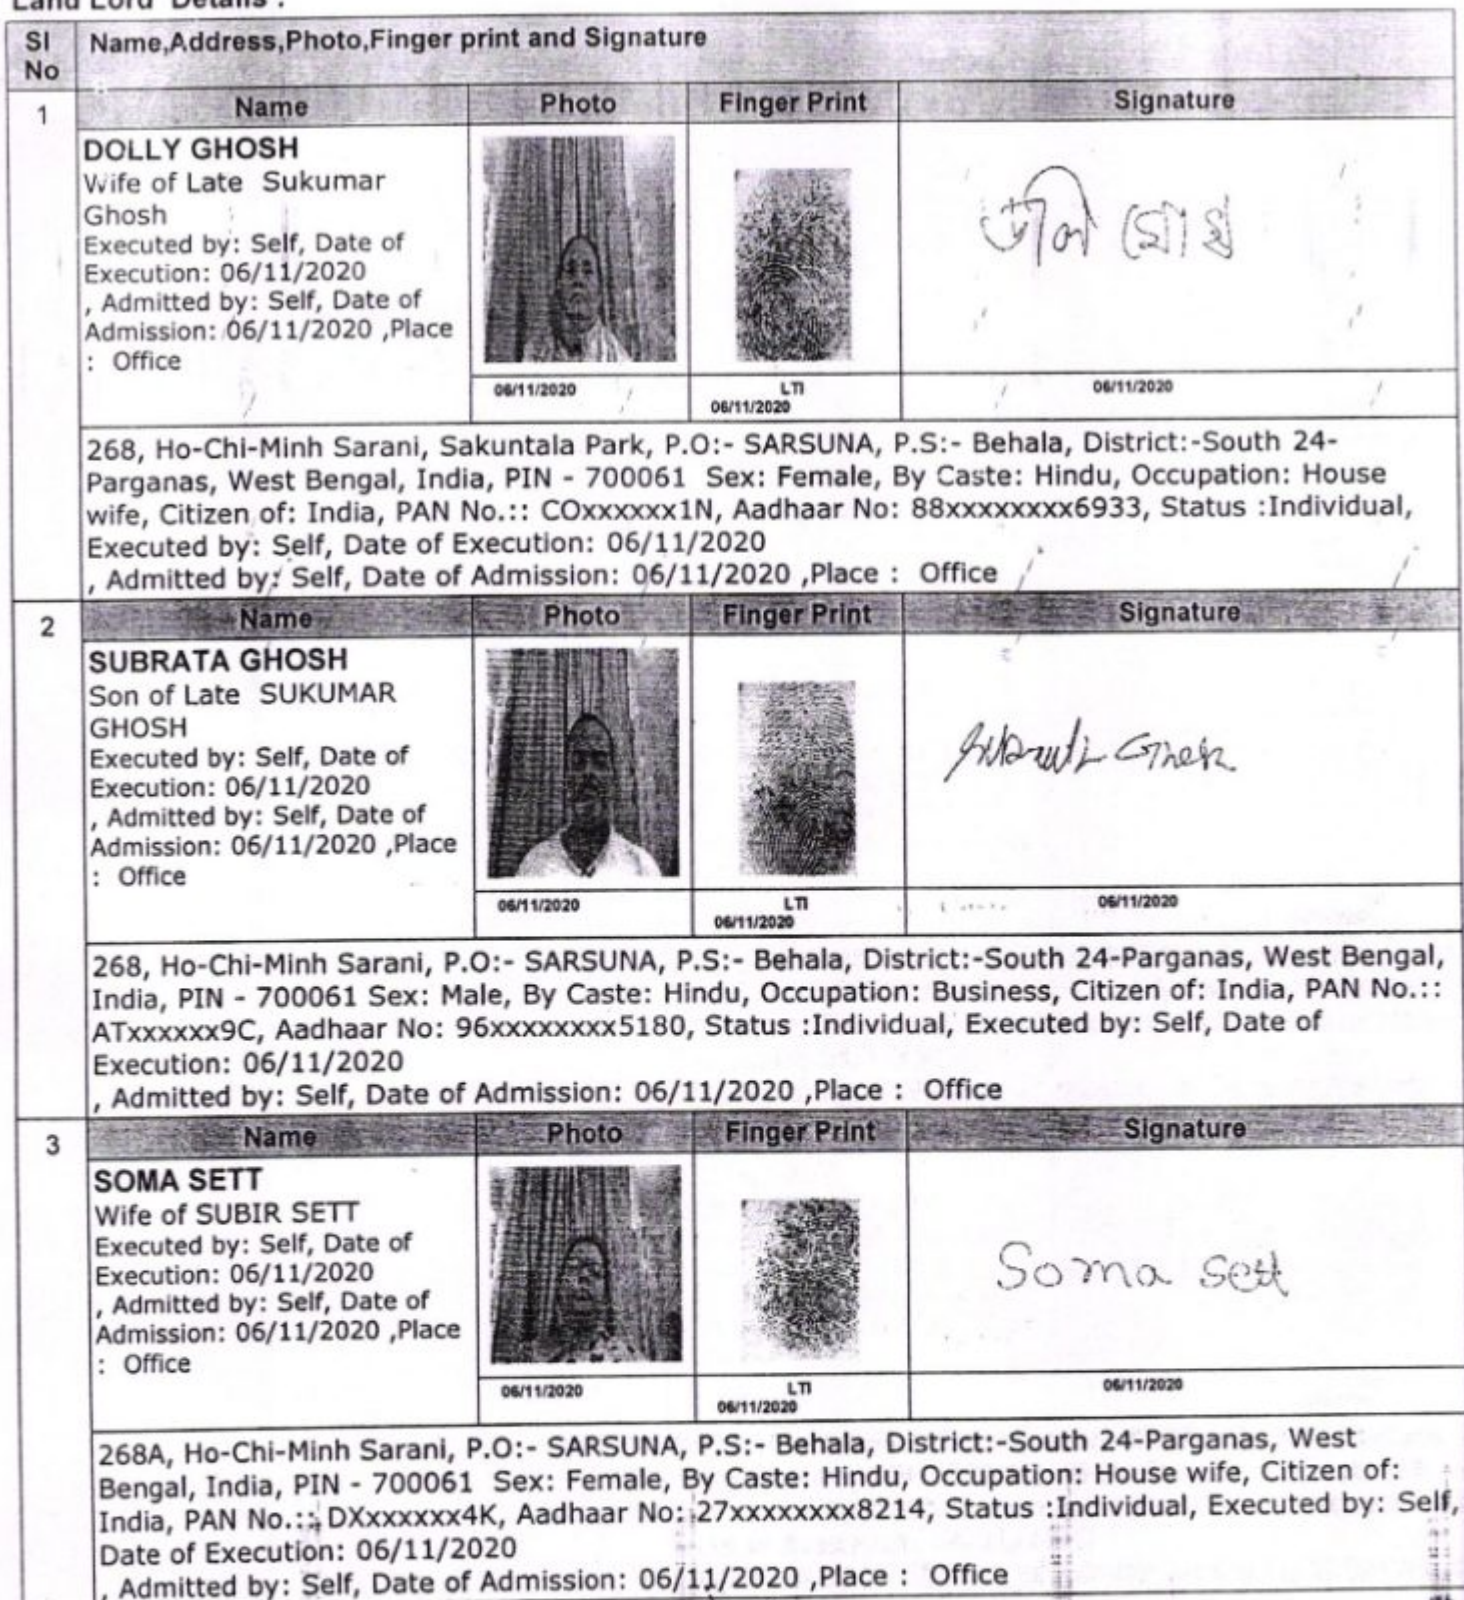 Land Lord Details :
Sl No
Name,Address,Photo,Finger print and Signature
1
Name Photo Finger Print Signature
DOLLY GHOSH
Wife of Late Sukumar
Ghosh
Executed by: Self, Date of
Execution: 06/11/2020
, Admitted by: Self, Date of
Admission: 06/11/2020 ,Place
: Office
ডলি ঘোষ
06/11/2020
LTI
06/11/2020
06/11/2020
268, Ho-Chi-Minh Sarani, Sakuntala Park, P.O:- SARSUNA, P.S:- Behala, District:-South 24-
Parganas, West Bengal, India, PIN - 700061 Sex: Female, By Caste: Hindu, Occupation: House
wife, Citizen of: India, PAN No.:: COxxxxxx1N, Aadhaar No: 88xxxxxxxx6933, Status :Individual,
Executed by: Self, Date of Execution: 06/11/2020
, Admitted by: Self, Date of Admission: 06/11/2020 ,Place : Office
2
Name Photo Finger Print Signature
SUBRATA GHOSH
Son of Late SUKUMAR
GHOSH
Executed by: Self, Date of
Execution: 06/11/2020
, Admitted by: Self, Date of
Admission: 06/11/2020 ,Place
: Office
06/11/2020
LTI
06/11/2020
06/11/2020
268, Ho-Chi-Minh Sarani, P.O:- SARSUNA, P.S:- Behala, District:-South 24-Parganas, West Bengal,
India, PIN - 700061 Sex: Male, By Caste: Hindu, Occupation: Business, Citizen of: India, PAN No.::
ATxxxxxx9C, Aadhaar No: 96xxxxxxxx5180, Status :Individual, Executed by: Self, Date of
Execution: 06/11/2020
, Admitted by: Self, Date of Admission: 06/11/2020 ,Place : Office
3
Name Photo Finger Print Signature
SOMA SETT
Wife of SUBIR SETT
Executed by: Self, Date of
Execution: 06/11/2020
, Admitted by: Self, Date of
Admission: 06/11/2020 ,Place
: Office
Soma Sett
06/11/2020
LTI
06/11/2020
06/11/2020
268A, Ho-Chi-Minh Sarani, P.O:- SARSUNA, P.S:- Behala, District:-South 24-Parganas, West
Bengal, India, PIN - 700061 Sex: Female, By Caste: Hindu, Occupation: House wife, Citizen of:
India, PAN No.:: DXxxxxxx4K, Aadhaar No: 27xxxxxxxx8214, Status :Individual, Executed by: Self,
Date of Execution: 06/11/2020
, Admitted by: Self, Date of Admission: 06/11/2020 ,Place : Office